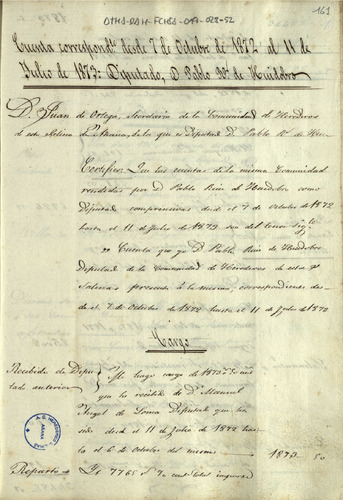 161
Cuenta correspondte desde 7 de Octubre de 1872 al 11 de
Julio de 1873: Diputado, D. Pablo Rz. de Huidobro
D. Juan de Ortega, Secretario de la Comunidad de Herederos
de este Salina de Añana, de la que es Diputado D. Pablo Rz. de Hui-
Certifico: Que las cuentas de la misma Comunidad
rendidas por D. Pablo Ruiz de Huidobro como
Diputado comprensivas desde el 7 de Octubre de 1872
hasta el 11 de Julio de 1873 son del tenor sigte.
"Cuenta que yo D. Pablo Ruiz de Huidobro
Diputado de la Comunidad de Herederos de estas
Salinas presento á la misma, correspondiente des-
de el 7 de Octubre de 1872 hasta el 11 de Julio de 1873
Cargo
Recibido de Dipu- Me hago cargo de 1873 50
tado anterior que he recibido de D. Manuel
Angel de Loma Diputado que ha
sido desde el 11 de Julio de 1872 has-
ta el 6 de Octubre del mismo 1873 50
Reparto De 7765